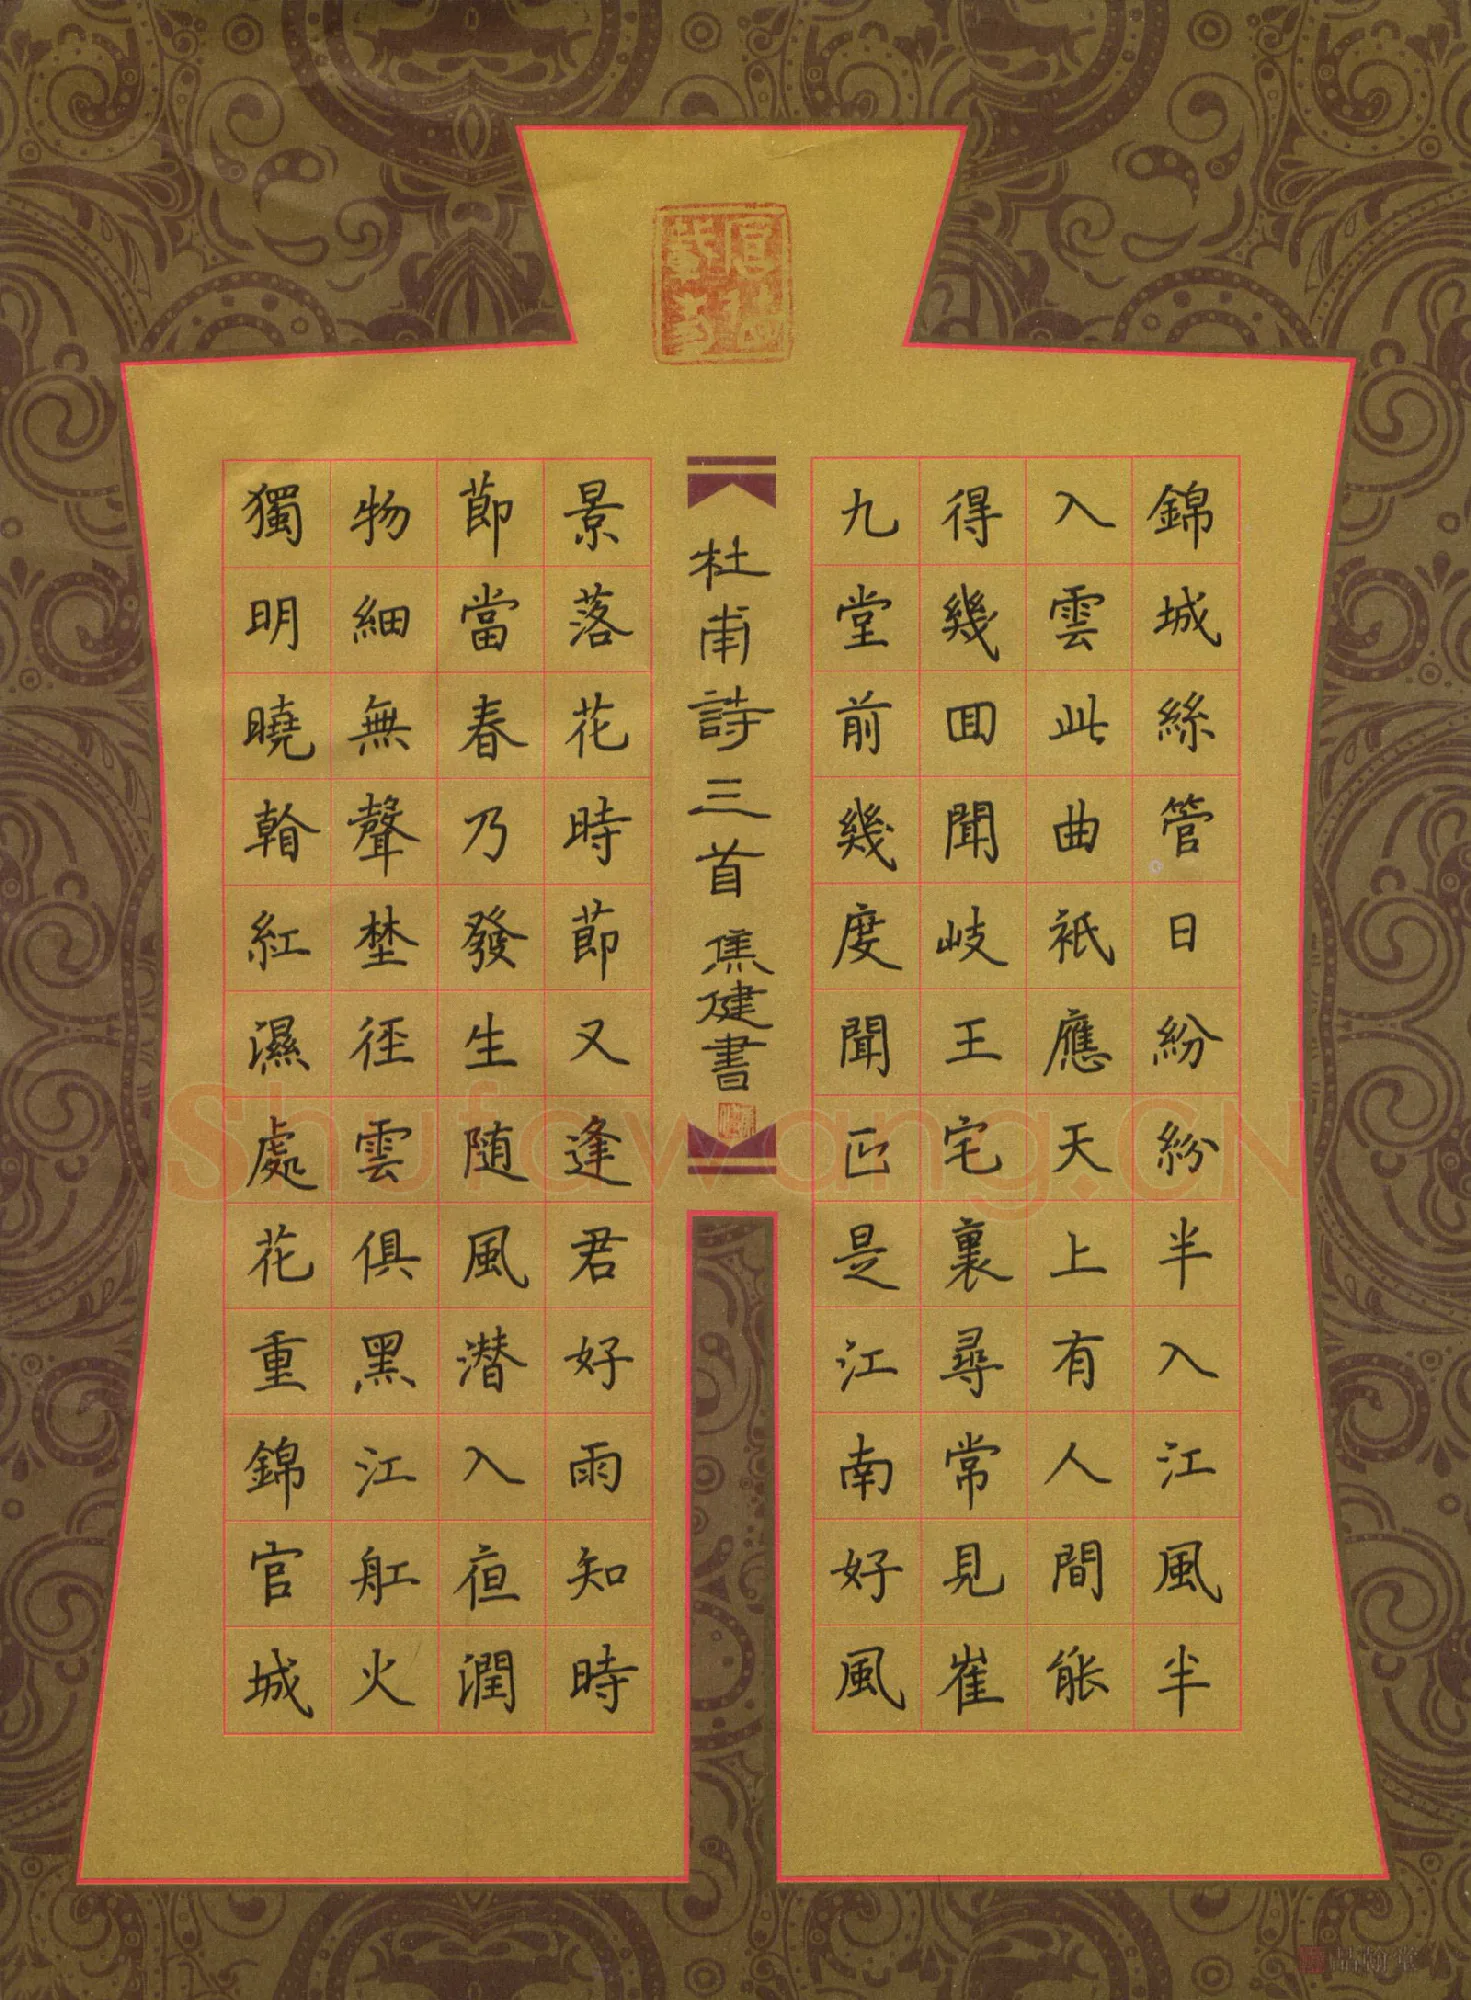 錦城絲管日紛紛半入江風半
入雲此曲衹應天上有人間能
得幾囬聞岐王宅裏尋常見崔
九堂前幾度聞正是江南好風
杜甫詩三首 焦健書
景落花時節又逢君好雨知時
節當春乃發生随風潜入夜潤
物細無聲埜徑雲俱黑江舡火
獨明曉看紅濕處花重錦官城
Shufawang.CN
品翰堂